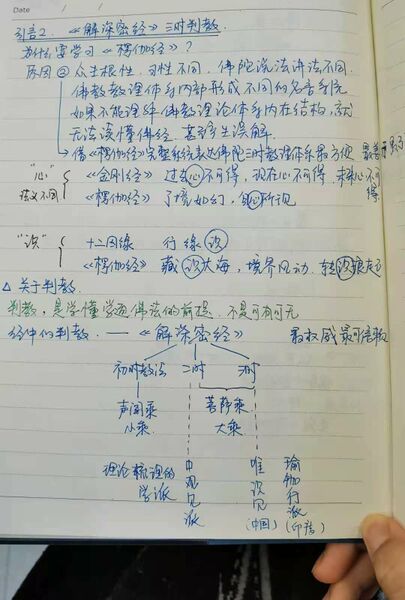 Date / /
引言2. 《解深密经》三时判教
为什么要学习《楞伽经》?
原因② 众生根性、习性不同, 佛陀说法讲法不同.
佛教教理体系内部形成不同的名言系统
如果不能理解佛教理论体系内在结构, 就
无法读懂佛经. 甚至产生误解.
借《楞伽经》完整系统表达佛陀三时教理体系
"心" 《金刚经》 过去心不可得, 现在心不可得 未来心不可得
该义不同 《楞伽经》 了境如幻, 自心所现
"识" 十二因缘 行缘识
《楞伽经》 藏识大海, 境界风动, 转识浪
△ 关于判教.
判教, 是学懂学通佛法的前提, 不是可有可无
经中的判教. — 《解深密经》 最权威最可信
初时教法 二时 三时
声闻乘 菩萨乘
小乘. 大乘.
理论梳理的学派 中观见派 唯识见 瑜伽行派
(中国) (印度)